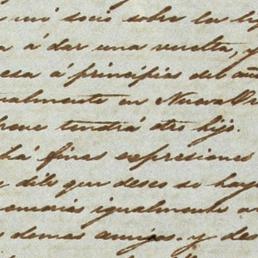 mi socio sobre la
a á dar una vuelta, y
esa á principios del añ
almente en Nueva Or
breve tendrá otro hijo.
há finas expresiones
y dile que deseo se hay
emorias igualmente
s demas amigos, y des